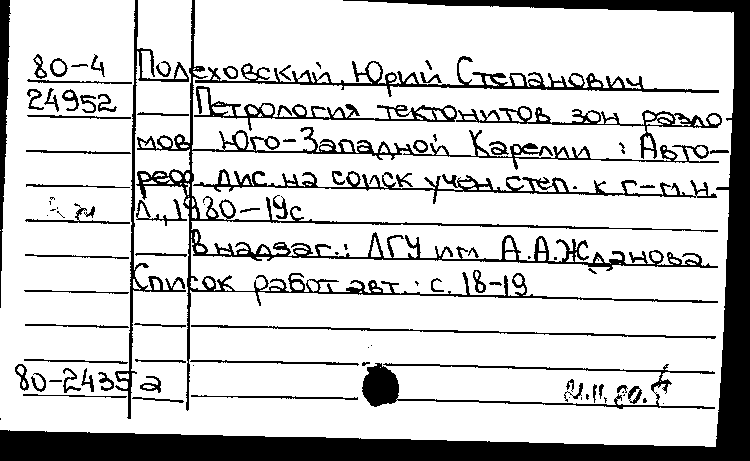 80-4 Полеховский, Юрий Степанович
24952 Петрология тектонитов зон разло-
мов Юго-Западной Карелии : Авто-
реф. дис. на соиск учен. степ. к г.-м.н.-
Л., 1980-19с.
В надзаг.: ЛГУ им А.А.Жданова.
Список работ авт.: с. 18-19.
80-2435а 21.11.80.